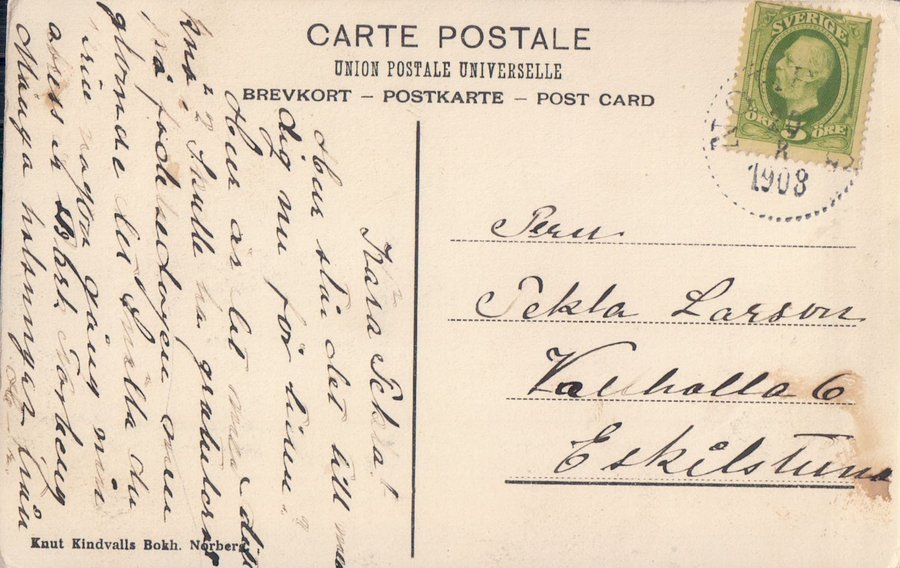 CARTE POSTALE
UNION POSTALE UNIVERSELLE
BREVKORT – POSTKARTE – POST CARD
SVERIGE
ÖRE 5 ÖRE
8
1908
Tekla Larson
Valhalla 6
Eskilstuna
Kära Tekla!
Hur står det till med
dig nu för tiden
Hur är det med
Skulle ha gratulera
på födelsedagen men
glömde det Snälla du
skriv någon gång
adress är Norberg
Många hälsningar från
Knut Kindvalls Bokh. Norberg.